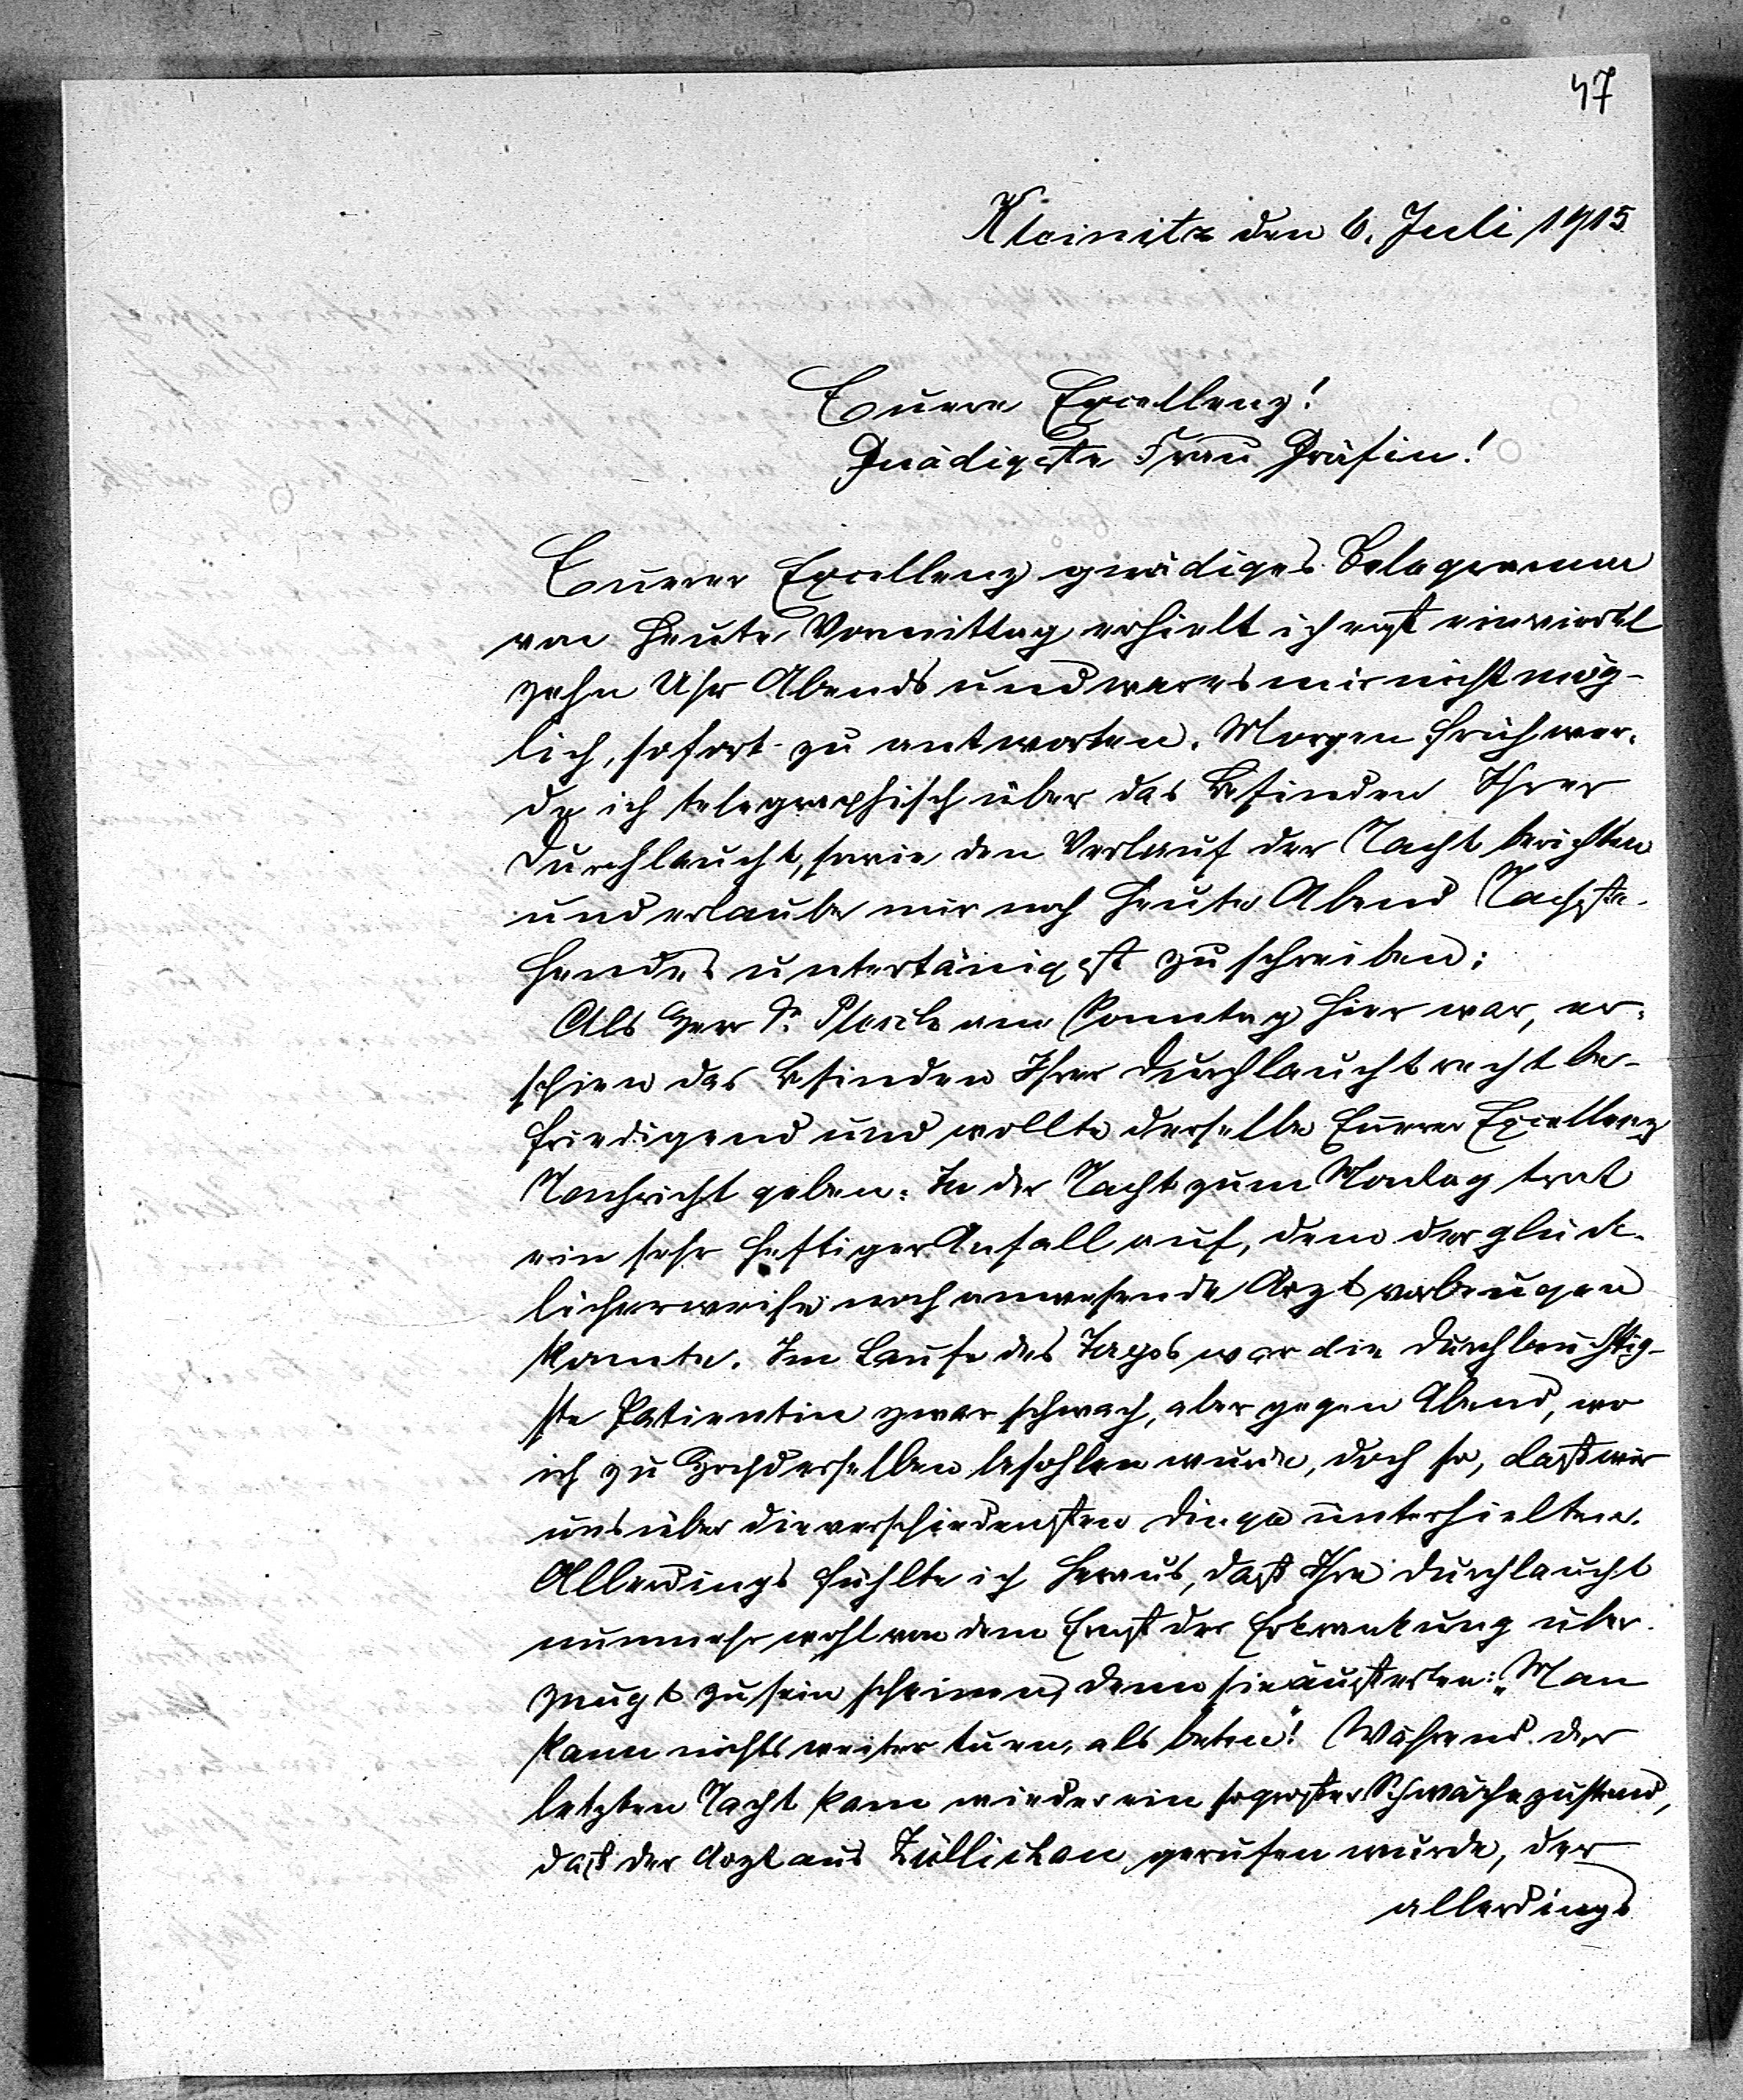 47
Kleinitz den 6. Juli 1915
Euere Excellenz!
Gnädigste Frau Gräfin!
Euerer Excellenz gnädiges Telegramm
von heute Vormittag erhielt ich erst einviertel
zehn Uhr Abends und war es mir nicht mög-
lich, sofort zu antworten. Morgen früh wer-
de ich telegraphisch über das Befinden Ihrer
Durchlaucht, sowie den Verlauf der Nacht berichten
und erlaube mir noch heute Abend Nachste-
hendes untertänigst zu schreiben:
Als Herr Dr. am Sonntag hier war, er-
schien das Befinden Ihrer Durchlaucht recht be-
friedigend und wollte derselbe Euerer Excellenz
Nachricht geben. In der Nacht zum Montag trat
ein sehr heftiger Anfall auf, dem der glück-
licherweise noch anwesende Arzt vorbeugen
konnte. Im Laufe des Tages war die Durchlauchtig-
ste Patientin zwar schwach, aber gegen Abend, wo
ich zu Hochderselben befohlen wurde, doch so, dass wir
uns über die verschiedensten Dinge unterhielten.
Allerdings fühlte ich heraus, dass Ihre Durchlaucht
nunmehr wohl von dem Ernst der Erkrankung über-
zeugt zu sein scheinen, denn sie äusserten: „Man
kann nichts weiter tuen, als beten"! Während der
letzten Nacht kam wieder ein so grosser Schwächezustand,
dass der Arzt aus Züllichau gerufen wurde, der
allerdings